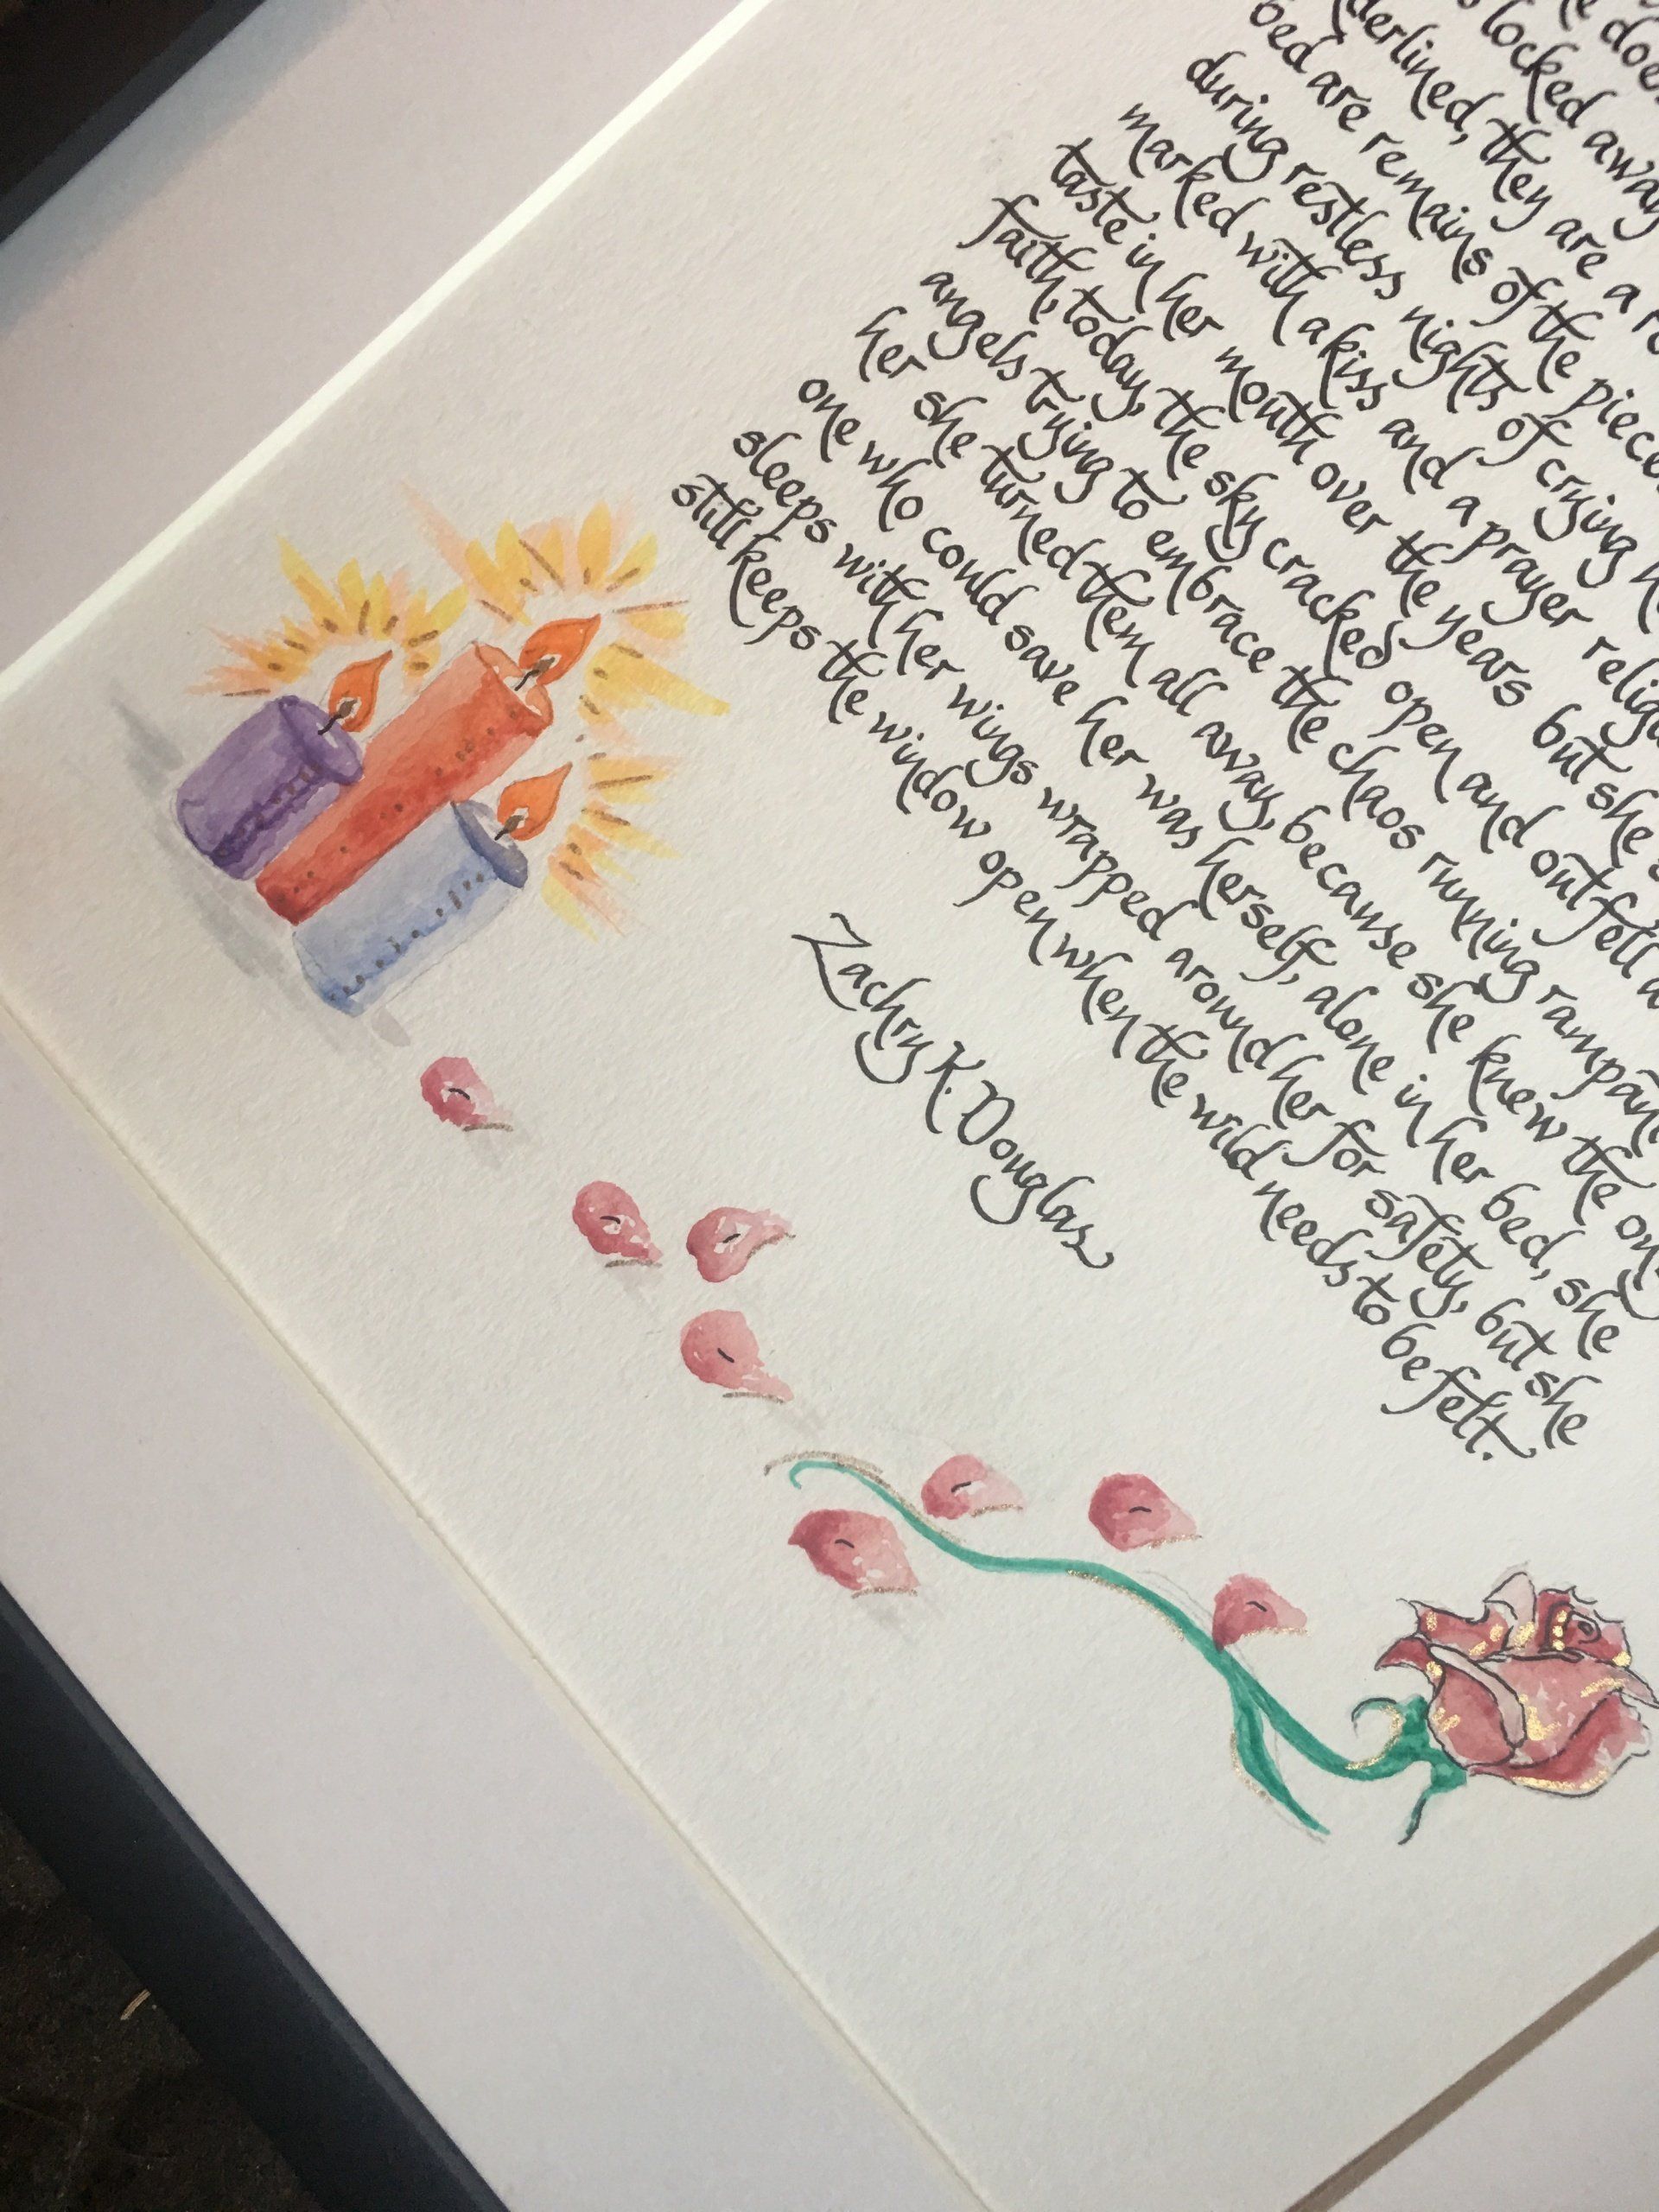 e does
s locked away
derlined, they are a re
bed are remains of the piece
during restless nights of crying h
marked with a kiss and a prayer religi
taste in her mouth over the years but she
faith, today, the sky cracked open and out fell a
angels trying to embrace the chaos running rampan
her she turned them all away, because she knew the on
one who could save her was herself, alone in her bed, she
sleeps with her wings wrapped around her for safety, but she
still keeps the window open when the wild needs to be felt.
Zachry K. Douglas